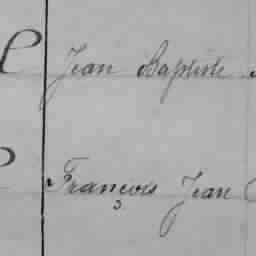 Jean Baptiste
François Jean